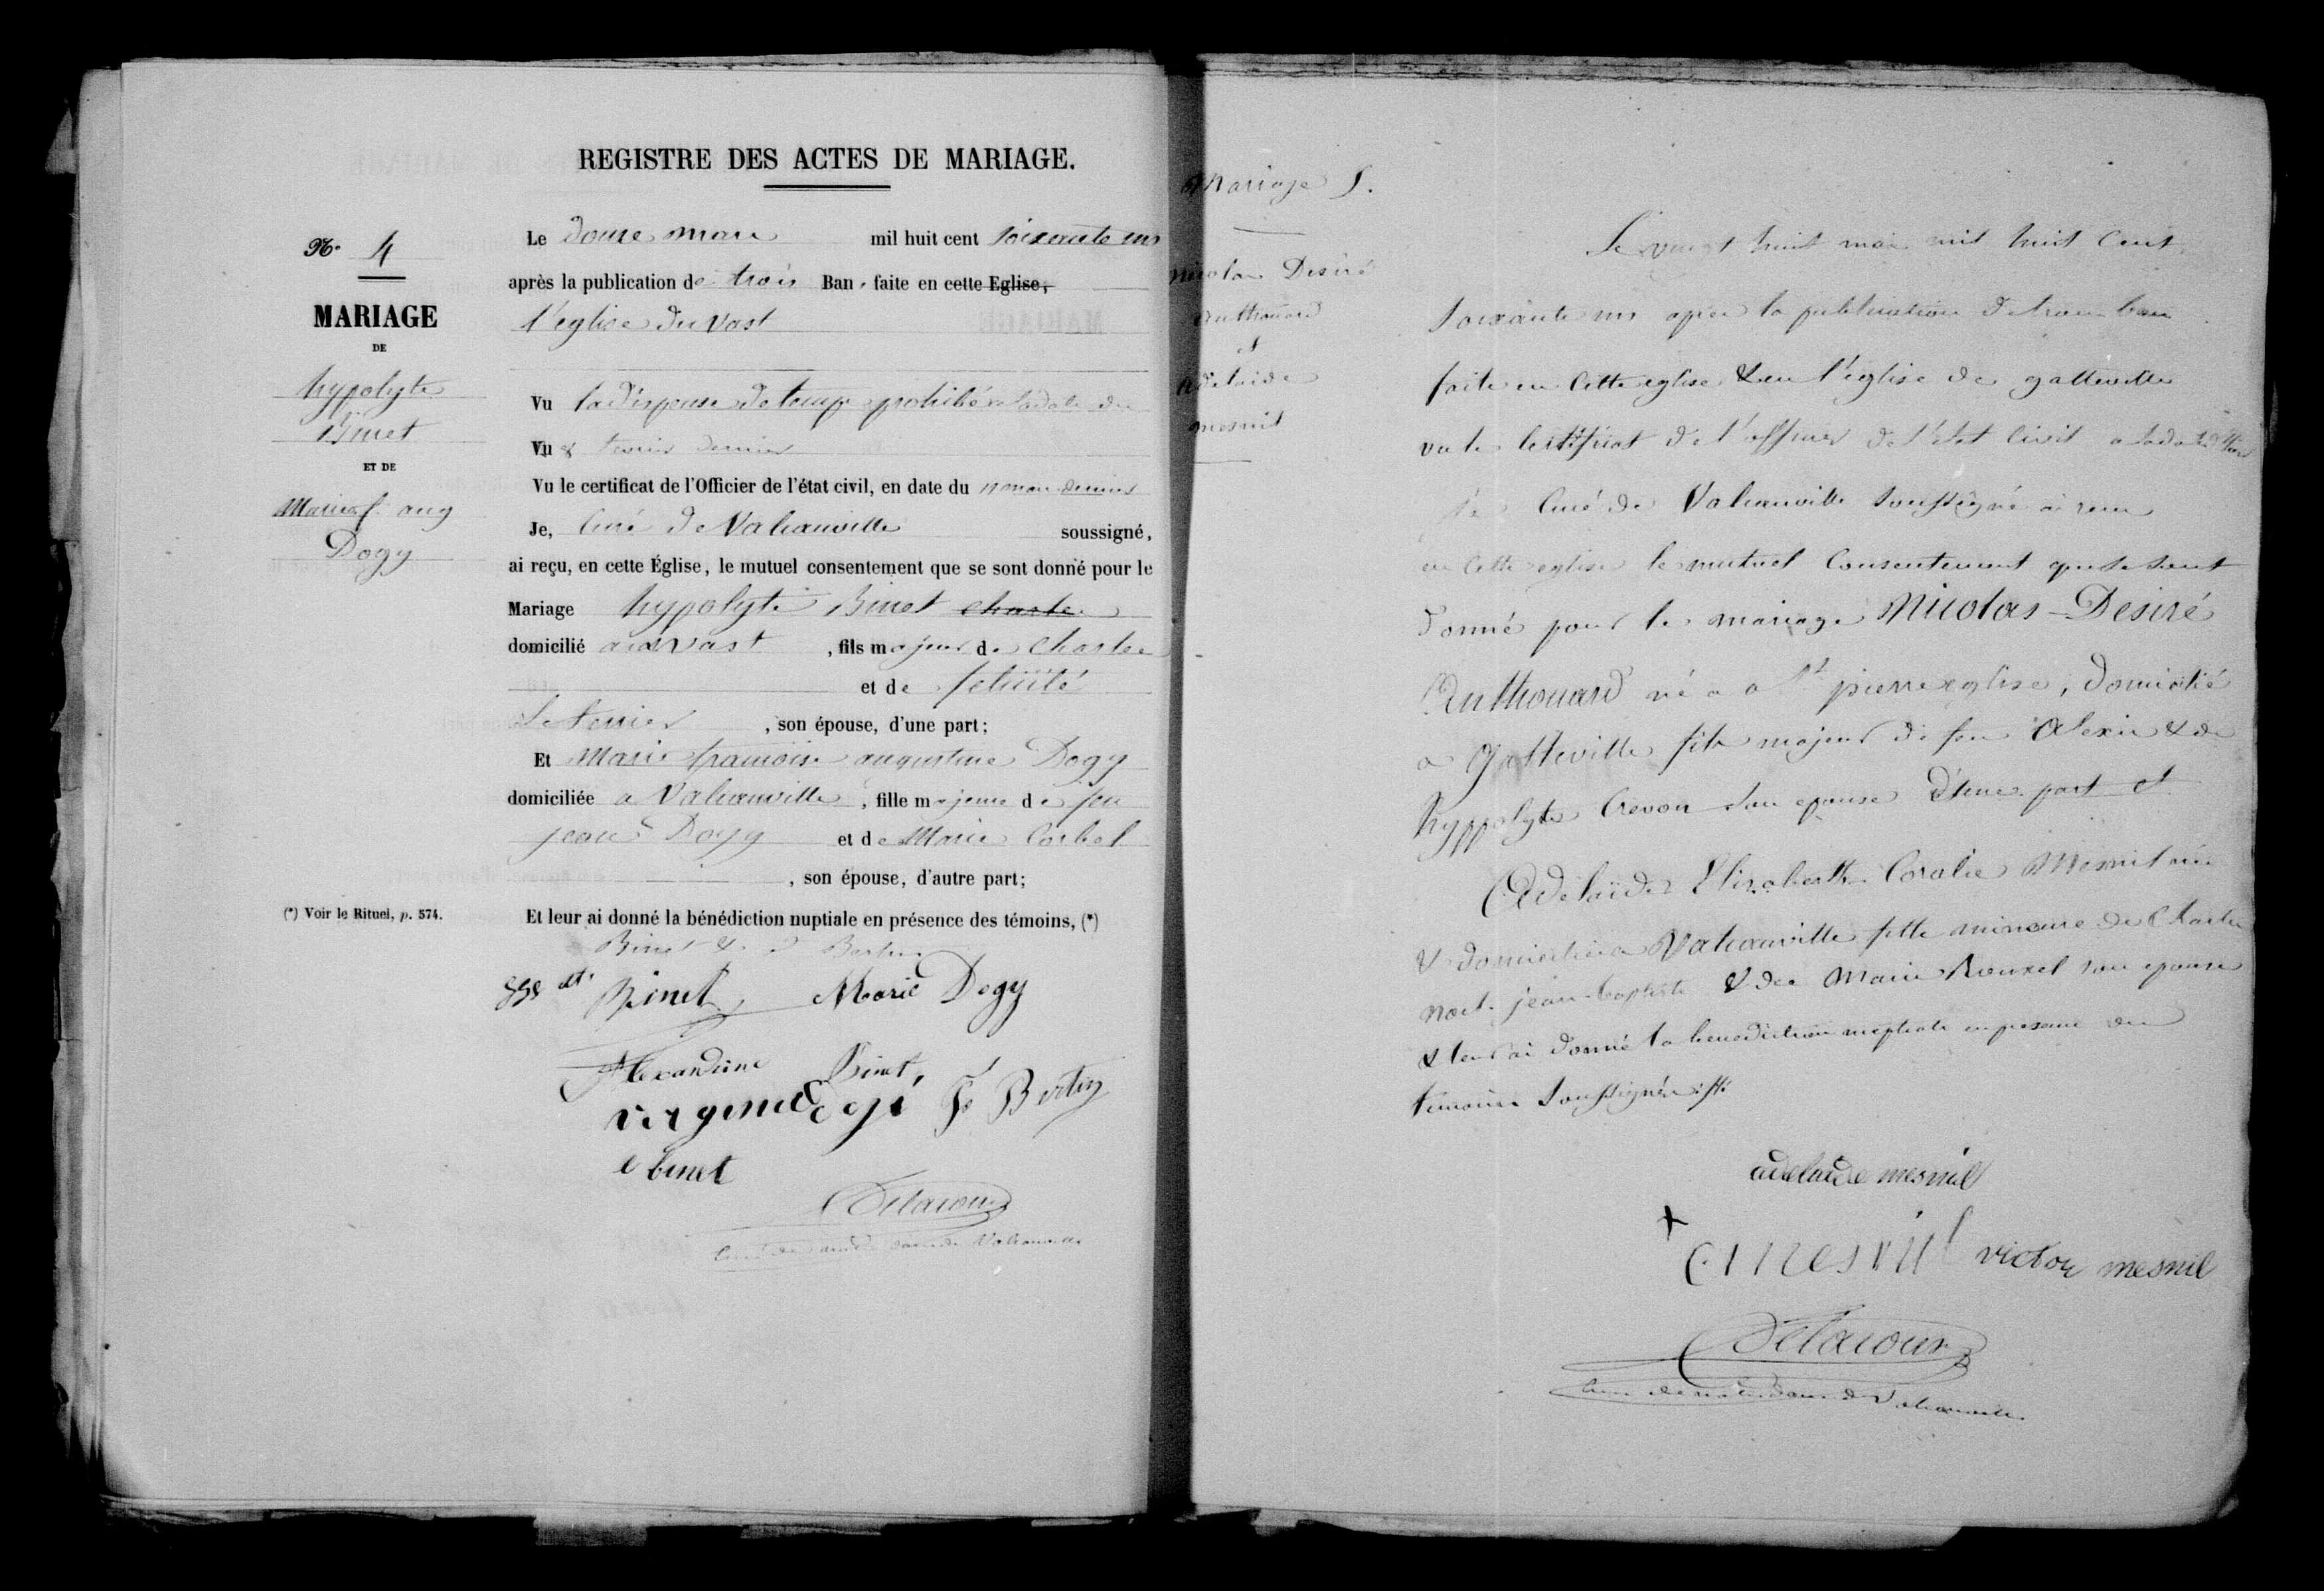 REGISTRE DES ACTES DE MARIAGE.
N° 4
MARIAGE
DE
hypolyte
Binet
ET DE
Marie f. aug
Dogy
(*) Voir le Rituel, p. 574.
Le douze mars mil huit cent soixante un
après la publication de trois Ban, faite en cette Eglise,
l'eglise du vast
Vu la dispense de temps prohibé a la date du
Vu fevrier dernier
Vu le certificat de l'Officier de l'état civil, en date du mars dernier
Je, Curé de Valcanville soussigné,
ai reçu, en cette Église, le mutuel consentement que se sont donné pour le
Mariage hypolyte Binet charle
domicilié au vast, fils majeur de charles
et de felicité
Le terrier, son épouse, d'une part;
Et Marie francoise augustine Dogy
domiciliée a Valcanville, fille majeure de feu
jean Dogy et de Marie Corbel
, son épouse, d'autre part;
Et leur ai donné la bénédiction nuptiale en présence des témoins, (*)
Binet & Bertin
Binet, Marie Dogy
Alexandrine Binet,
virginie Dogé F Bertin
e binet
Delacour
Curé de Valcanville
Mariage 5.
nicolas Desiré
Enthouard
et
Adelaide
mesnil
Le vingt huit mai mil huit cent
soixante un après la publication de trois bans
faite en cette eglise & en l'église de gatteville
vu le certificat de l'officier de l'état civil a la date d'hier
je Curé de Valcanville soussigné ai recu
en cette eglise le mutuel consentement que se sont
donné pour le mariage Nicolas-Desiré
Enthouard né a St pierre eglise, domicilié
a Gatteville fils majeur de feu Alexis & de
hyppolyte Crevon son epouse d'une part et
Adelaïde Elisabeth Coralie Mesnil née
& domiciliée a Valcanville fille mineure de Charles
noel jean-baptiste & de Marie Rouxel son epouse
& leur ai donné la benediction nuptiale en presence des
temoins soussignés
adelaide mesnil
+
c mesnil victor mesnil
Delacour
Curé de notre dame de Valcanville